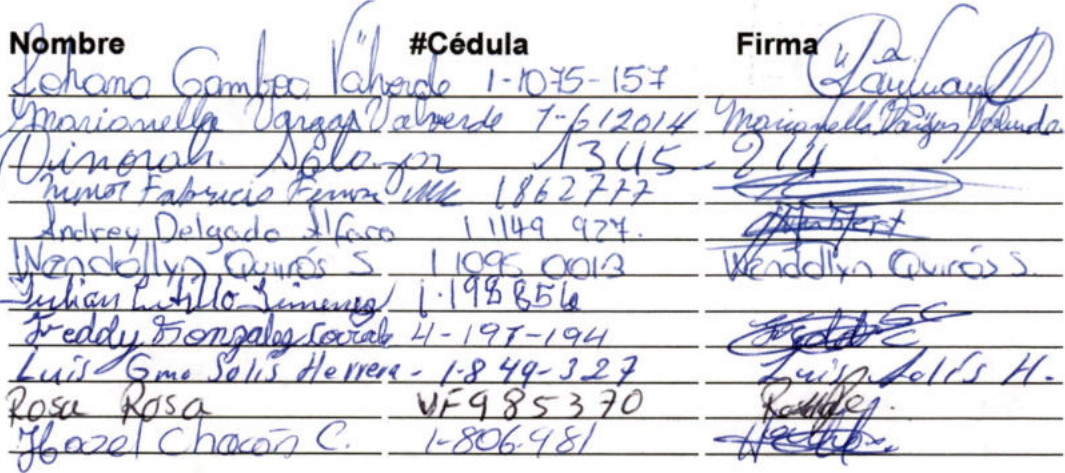 Nombre #Cédula Firma
Johana Gamboa Valverde 1-1075-157
Marianella Vargas Valverde 1-612014 Marianella Vargas Valverde
Dinorah Salazar 1 3415-214
Fabricio 1862777
Andrey Delgado Alfaro 1 1149 927.
Wendollyn Quirós S 1 1095 0013 Wendollyn Quirós S.
Julian Jimenez 1-198856
Freddy Gonzalez 4-197-194
Luis Gmo Solís Herrera - 1-849-327 Luis Solís H.
Rosa Rosa VF985370
Hazel Chacón C. 1-806-981